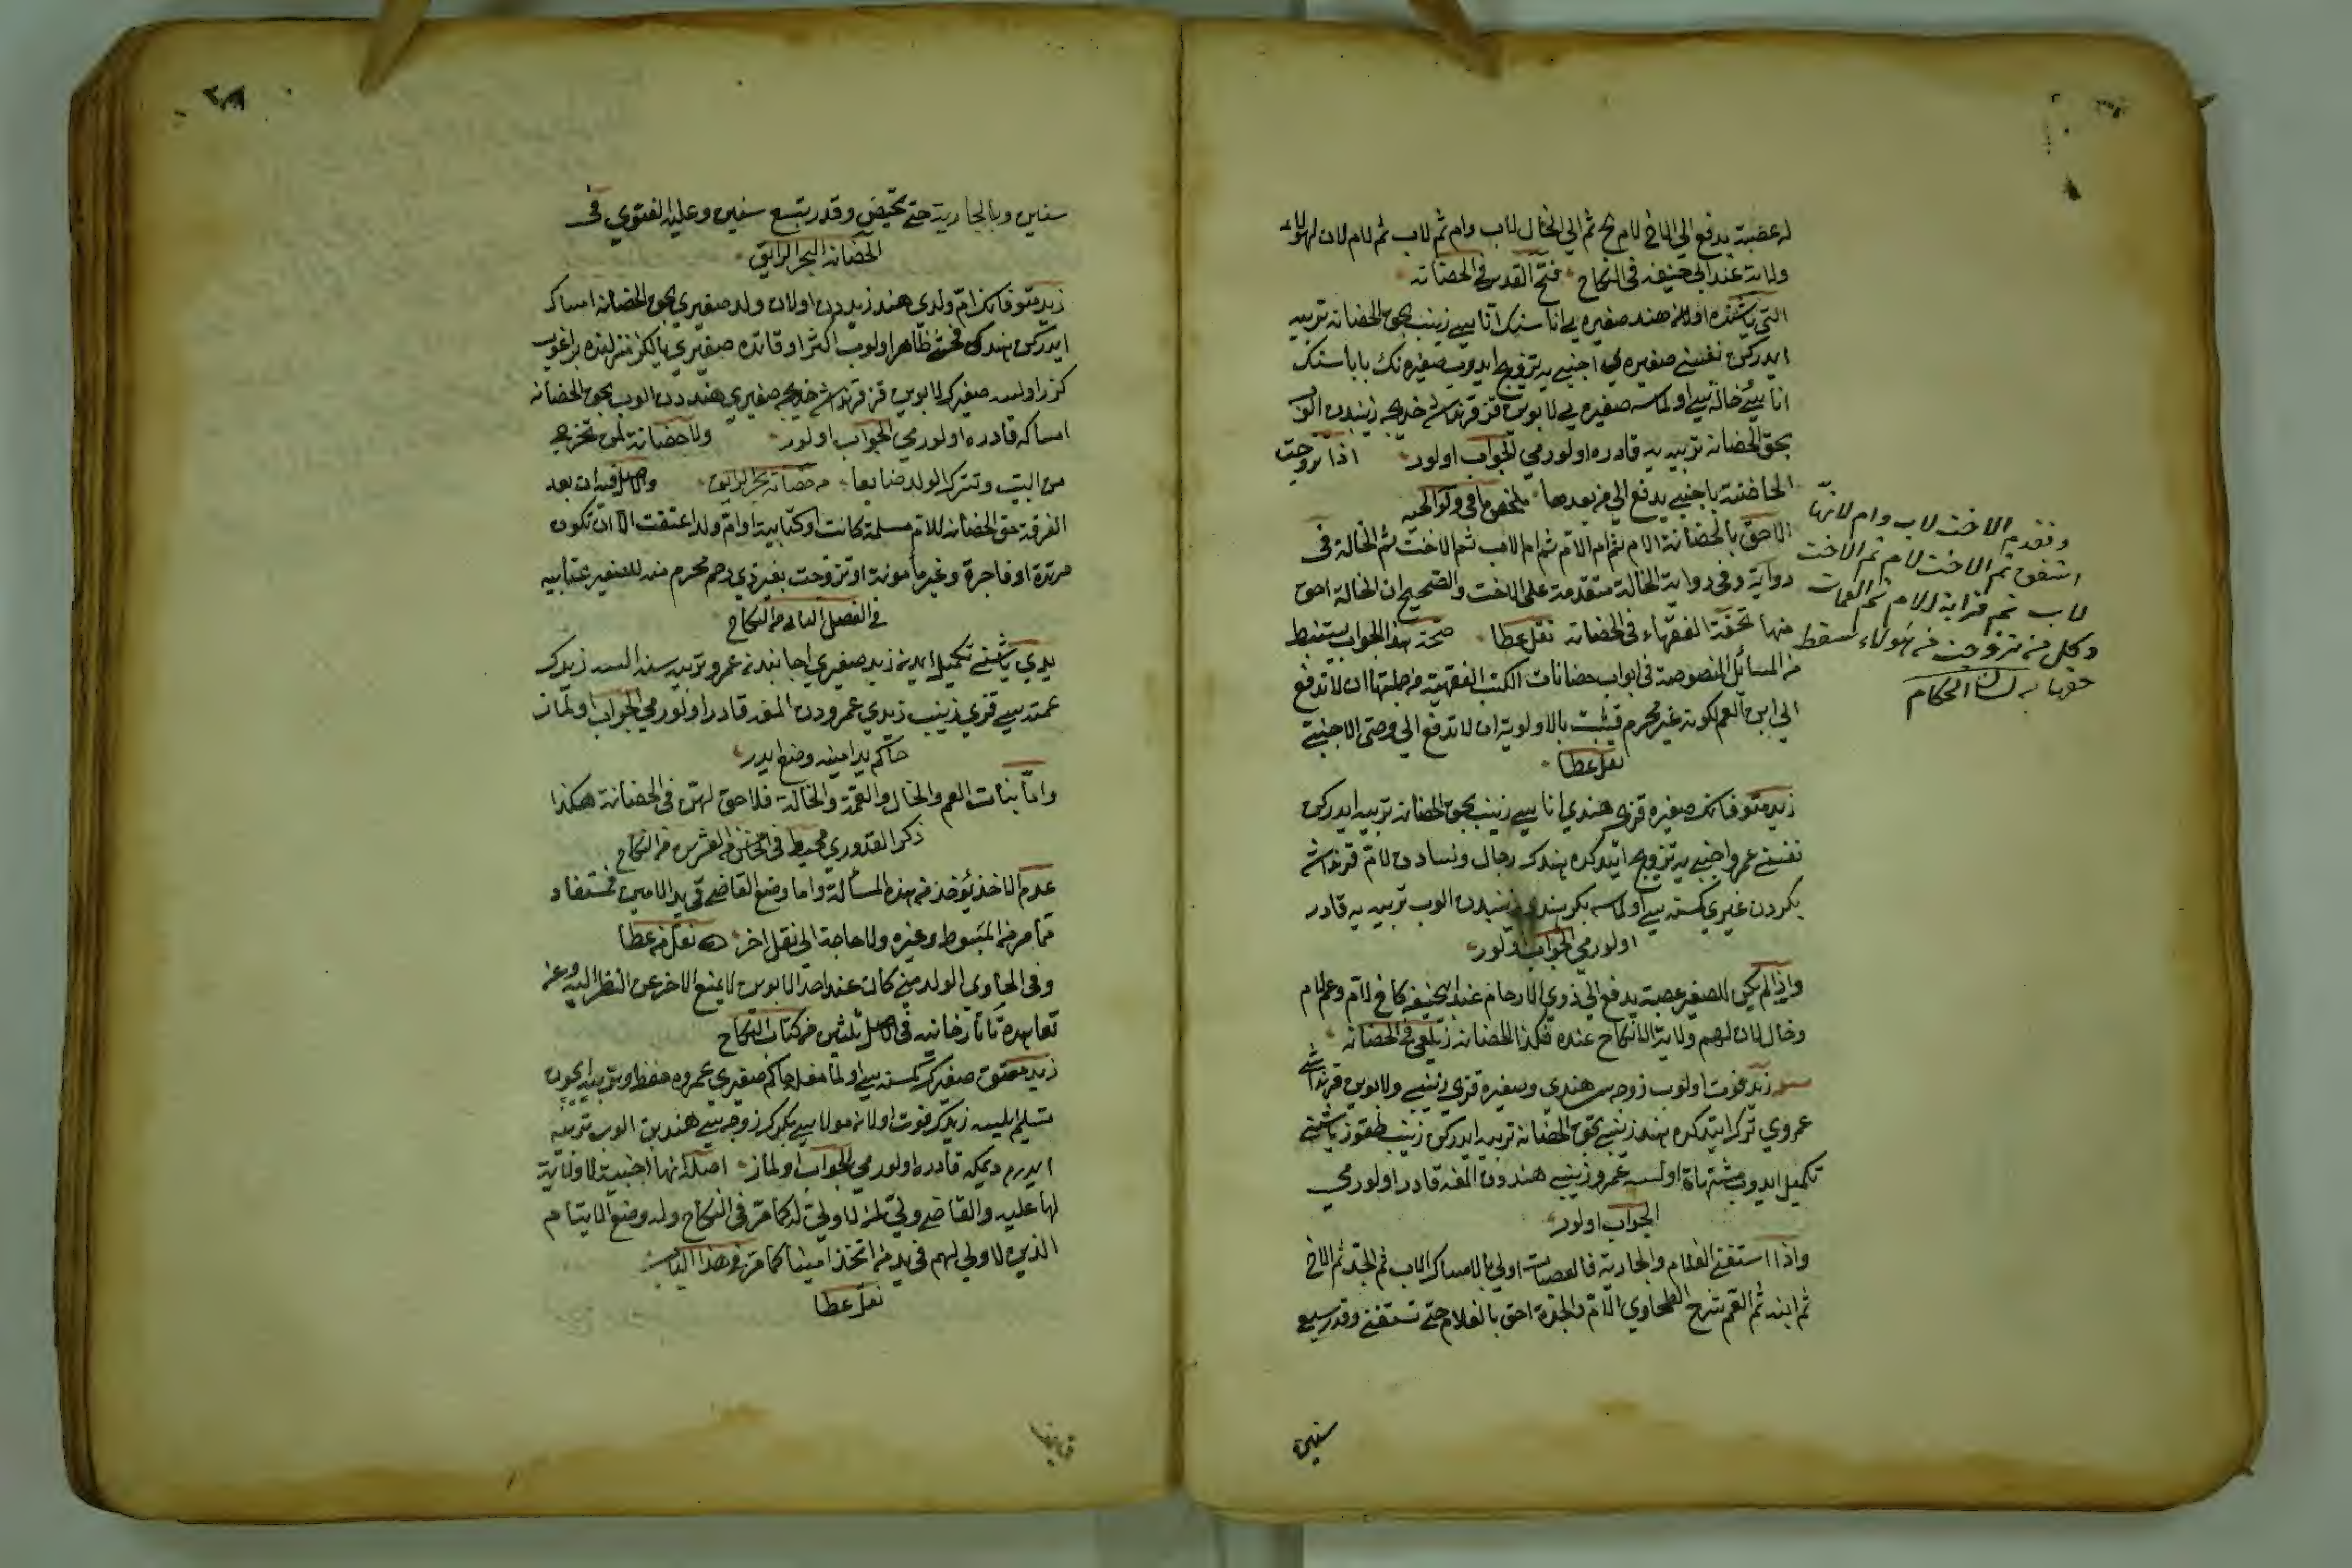 له عصبة يدفع الى الاخ لام ثم الى الخال لاب وام ثم لاب ثم لام لان لهؤلاء
ولاية عند ابي حنيفه فى النكاح فتح القدير فى الحضانه
التى ياشنده اولان هند صغيره يى اناسنك اناسى زينب بحق الحضانه تربيه
ايدركن نفسنى صغيره يى اجنبى يه تزويج ايدوب صغيره نك باباسنك
اناسى خالەسى اولماسه صغيره يى لابوين قز قرنداشى خديجه زينبدن الوب
بحق الحضانه تربيه يه قادره اولورمى الجواب اولور اذا تزوجت
الحاضنة باجنبى يدفع الى من بعدها ملخص ما فى ولوالجيه
الاحق بالحضانة الام ثم ام الام ثم ام الاب ثم الاخت ثم الخالة فى
رواية وفى رواية الخالة متقدمة على الاخت والصحيح ان الخالة احق
منها تحفة الفقهاء فى الحضانه نقل عطا صحة هذا الجواب يستنبط
من المسائل المنصوصة فى ابواب حضانات الكتب الفقهية من جملتها ان لا تدفع
الى ابن العم لكونه غير محرم فيثبت بالاولوية ان لا تدفع الى وصى الاجنبى
نقل عطا
زيد متوفانك صغيره قزى هندى اناسى زينب بحق الحضانه تربيه ايدركن
نفسنى عمرو اجنبى يه تزويج ايتدكده هندك رجال ونسادن لام قرنداشى
بكردن غيرى كمسنەسى اولماسه بكر هندى زينبدن الوب تربيه يه قادر
اولورمى الجواب اولور
واذا لم يكن للصغير عصبة يدفع الى ذوى الارحام عند ابى حنيفه كاخ لام وعم لام
وخال لان لهم ولاية الانكاح عنده فكذا الحضانه زيلعى فى الحضانه
زيد فوت اولوب زوجەسى هندى وصغيره قزى زينبى ولابوين قرنداشى
عمروى ترك ايتدكده هند زينبى بحق الحضانه تربيه ايدركن زينب طقوز ياشنى
تكميل ايدوب مشتهاة اولسه عمرو زينبى هندون المغه قادر اولورمى
الجواب اولور
واذا استغنى الغلام والجارية فالعصبات اولى بالامساك الاب ثم الجد ثم الاخ
ثم ابنه ثم العم شرح الطحاوي الام والجدة احق بالغلام حتى تستغنى وقدر بسبع
سنين
وتقدم الاخت لاب وام لانها
اشفق ثم الاخت لام ثم الاخت
لاب ثم قرابة الام ثم العمات
وكل من تزوجت من هؤلاء سقط
حقها لسان الحكام
سنين وبالجارية حتى تحيض وقدر بتسع سنين وعليه الفتوي فى
الحضانه البحر الرايق
زيد متوفانك ام ولدى هند زيددن اولان ولد صغيرى بحق الحضانه امساك
ايدركن هندك فحشى ظاهر اولوب اكثر اوقاتده صغيرى يالكز منزلنده براغوب
كزر اولسه صغيرك لابوين قز قرنداشى خديجه صغيرى هنددن الوب بحق الحضانه
امساكه قادره اولورمى الجواب اولور ولا حضانة لمن تخرج
من البيت وتترك الولد ضايعا من حضانة بحر الرايق والاصل فيه ان بعد
الفرقة حق الحضانه للام مسلمة كانت او كتابية او ام ولد اعتقت الا ان تكون
مرتدة او فاجرة وغير مأمونة او تزوجت بغير ذي رحم محرم منه للصغير عتابيه
فى الفصل الثانى من النكاح
يدى ياشنى تكميل ايدن زيد صغيري اجانبدن عمرو تربيەسنده السه زيدك
عمتەسى قزى زينب زيدي عمرودن المغه قادر اولورمى الجواب اولماز
حاكم يد امينه وضع ايدر
واما بنات العم والخال والعمة والخالة فلا حق لهن فى الحضانة هكذا
ذكر القدوري محيط فى الخامس والعشرين من النكاح
عدم الاخذ يؤخذ من هذه المسألة واما وضع القاضى فى يد الامين فمستفاد
مما مر من المبسوط وغيره ولا حاجة الى نقل اخر نقل من عطا
وفى الحاوى الولد متى كان عند احد الابوين لا يمنع الاخر عن النظر اليه وعن
تعاهده تاتارخانيه فى الفصل ثلثين من كتاب النكاح
زيد معتوق صغيرك كمسنەسى اولمامغله حاكم صغيري عمروه حفظ وتربيه ايچون
تسليم ايلسه زيدك فوت اولان مولاسى بكرك زوجەسى هند بن الوب تربيه
ايدرم ديمكه قادره اولورمى الجواب اولماز اصلا انها اجنبية لا ولاية
لها عليه والقاضى ولى لمن لا ولى له كما مر فى النكاح وله وضع الايتام
الذين لا ولى لهم فى يد من اتخذ امينا كما مر فى هذا الباب
نقل عطا